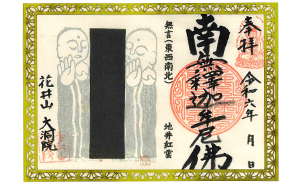 奉拝
令和六年 月 日
南無釋迦牟尼佛
無言（東西南北）
地井紅雲
花井山 大洞院